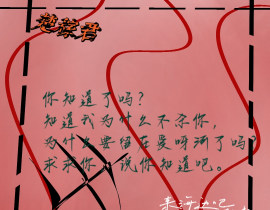 楚慈君
你知道了吗？
知道我为什么不杀你，
为什么要留在爱呀河了吗？
求求你，说你知道吧。
来河边吧